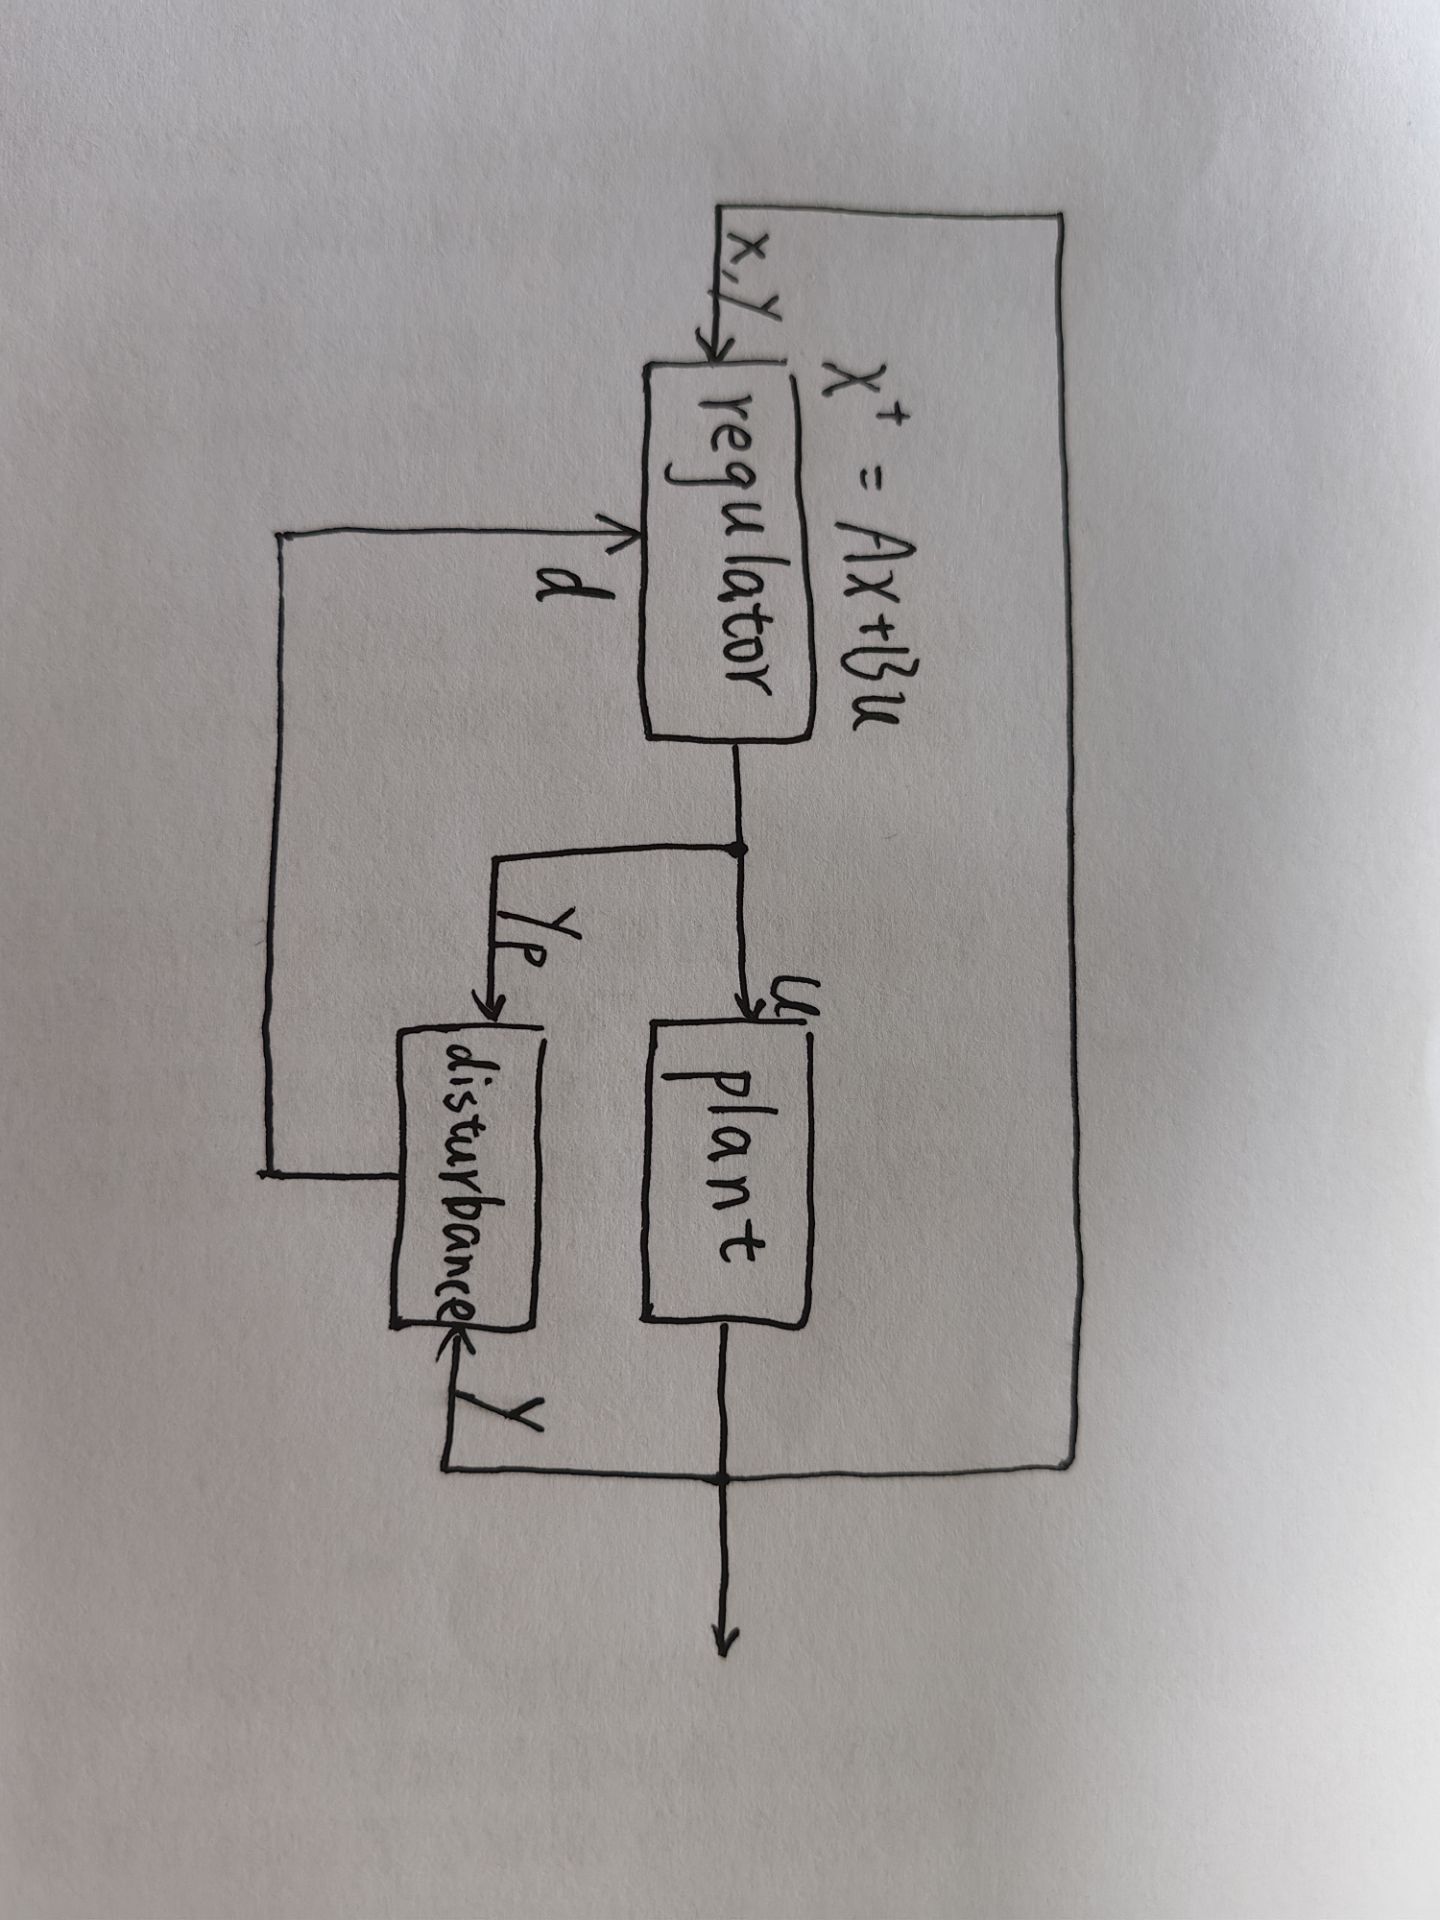 x⁺ = Ax+Bu
x,y
regulator
u
plant
d
yₚ
disturbance
y